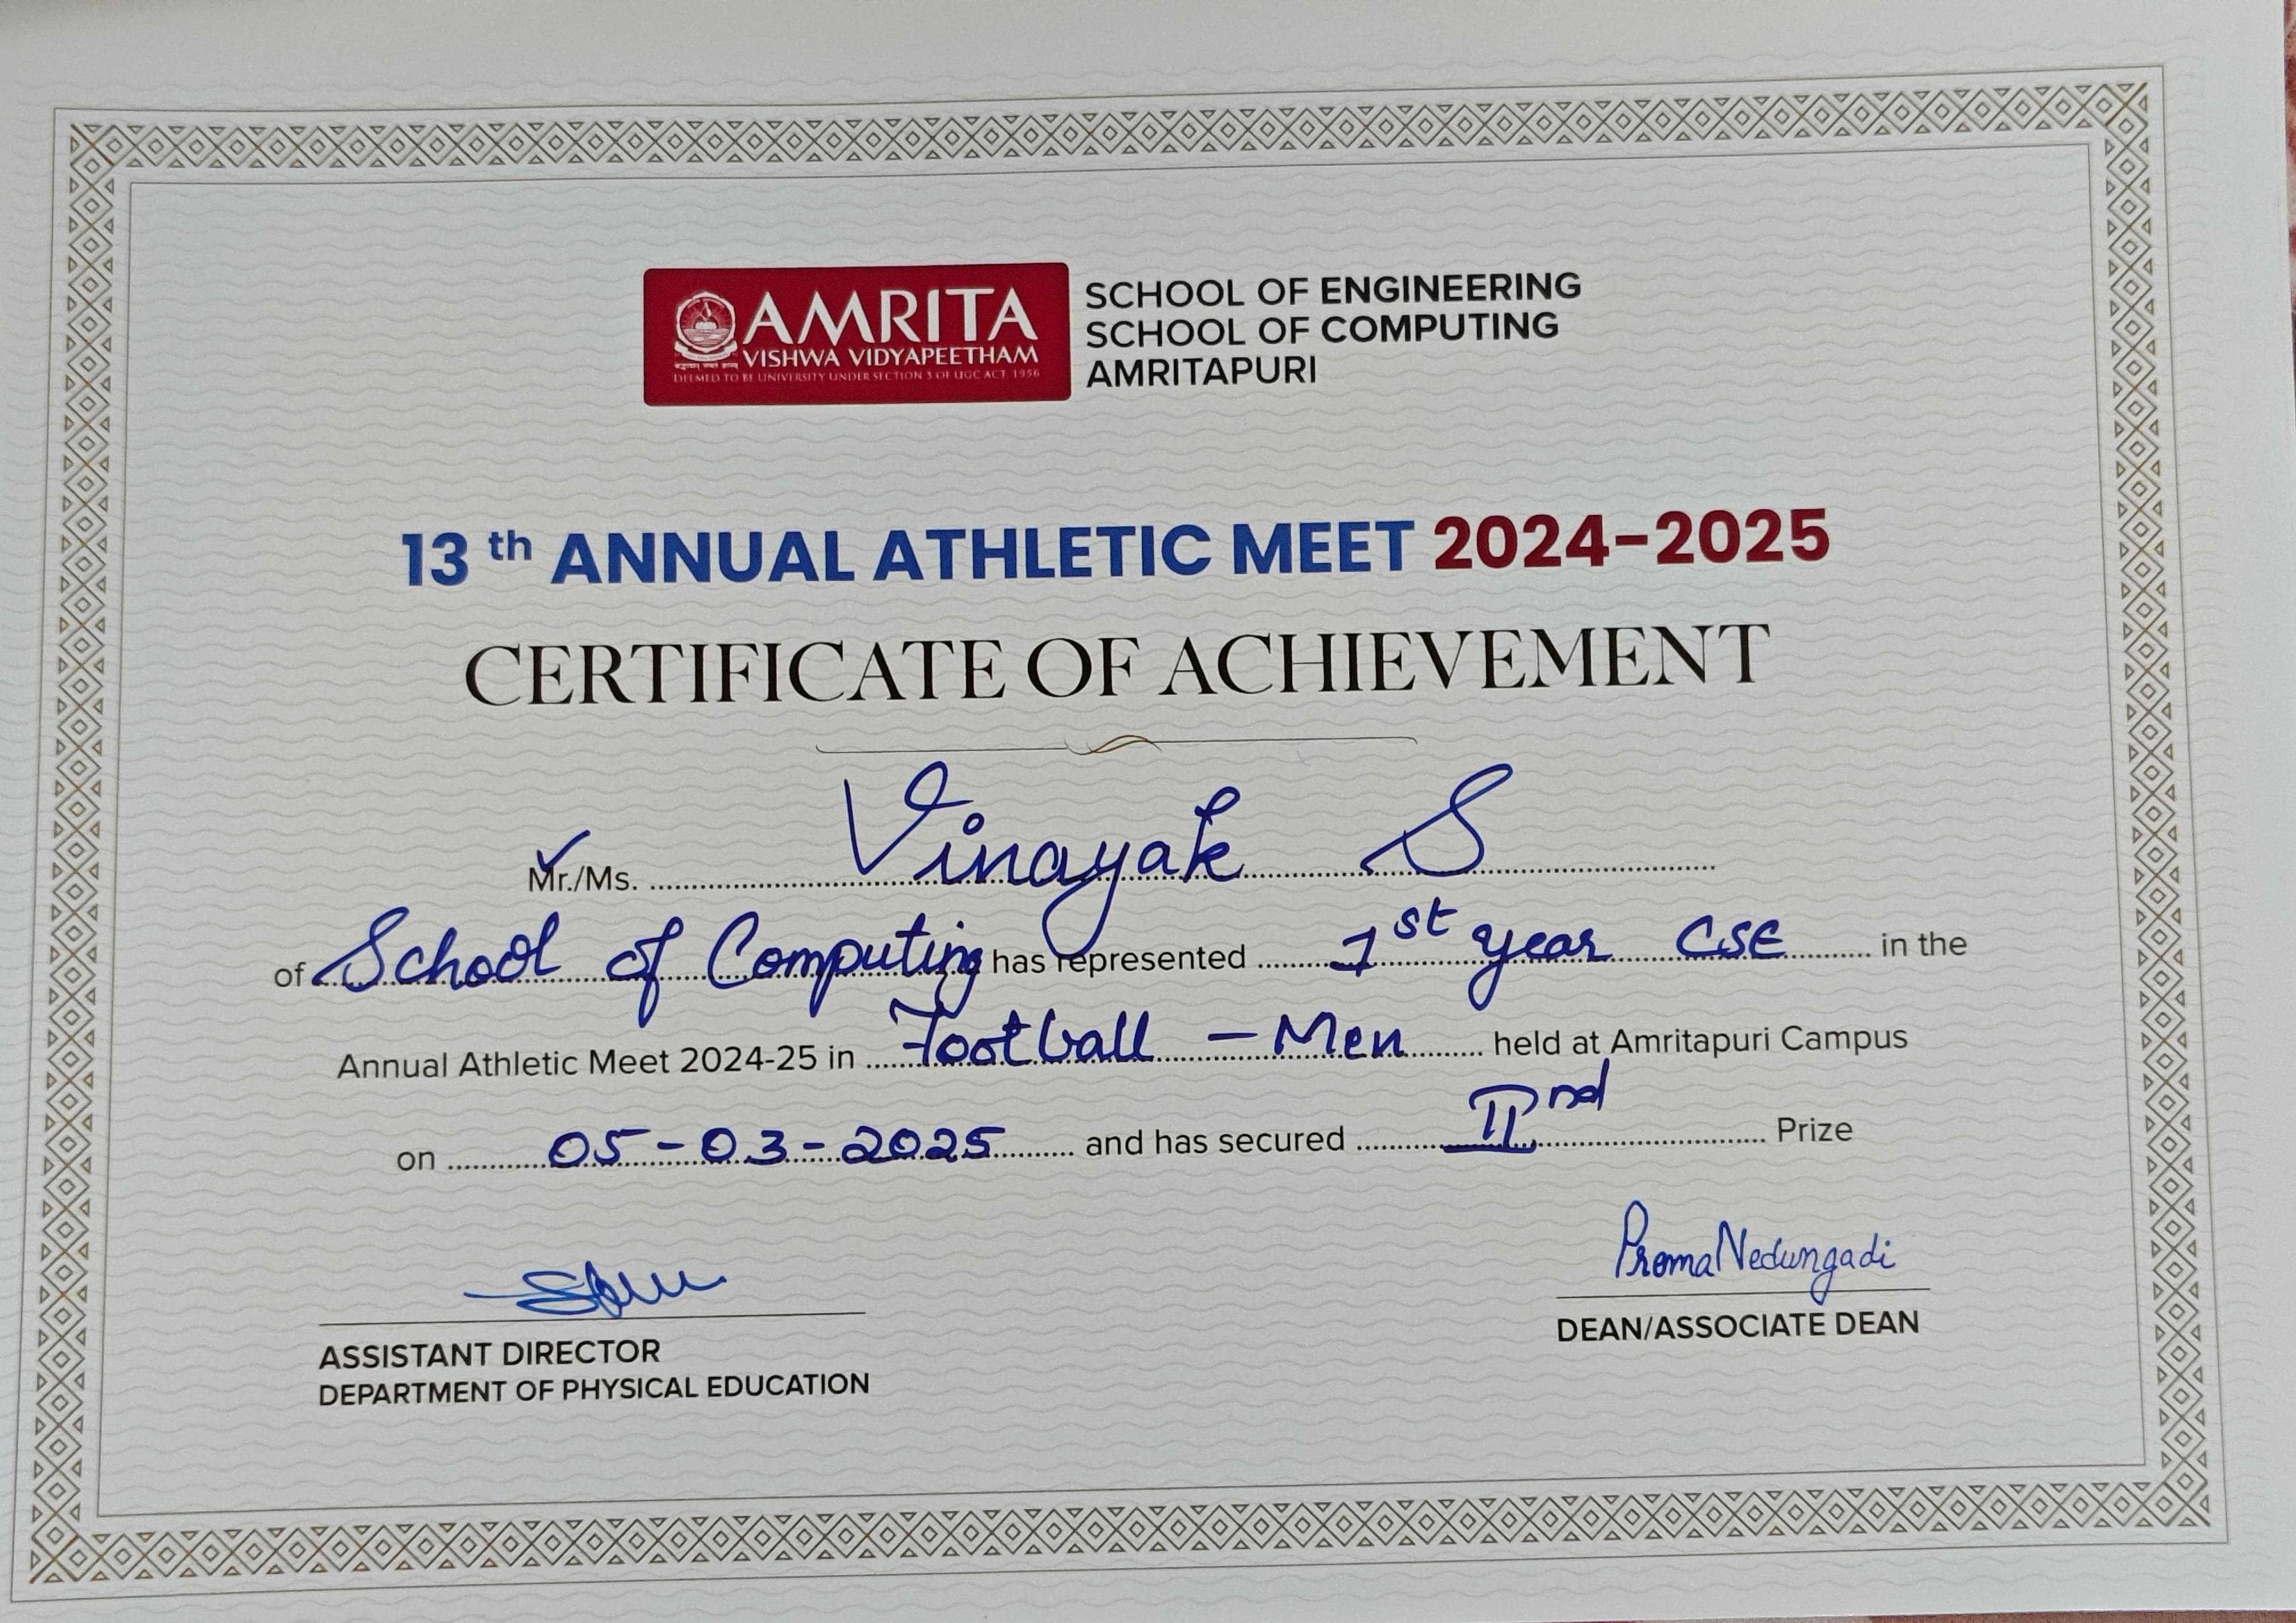 AMRITA
VISHWA VIDYAPEETHAM
DEEMED TO BE UNIVERSITY UNDER SECTION 3 OF UGC ACT, 1956
SCHOOL OF ENGINEERING
SCHOOL OF COMPUTING
AMRITAPURI
13 th ANNUAL ATHLETIC MEET 2024-2025
CERTIFICATE OF ACHIEVEMENT
Mr./Ms. Vinayak S
of School of Computing has represented 1st year CSE in the
Annual Athletic Meet 2024-25 in Football - Men held at Amritapuri Campus
on 05-03-2025 and has secured IInd Prize
Prema Nedungadi
ASSISTANT DIRECTOR
DEPARTMENT OF PHYSICAL EDUCATION
DEAN/ASSOCIATE DEAN